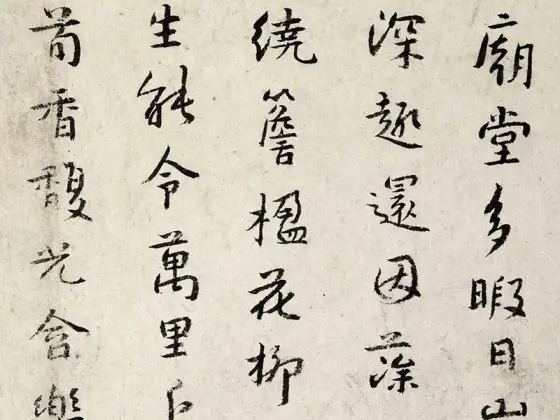 廟堂多暇日山
深趣還因藻
繞簷楹花柳
生能令萬里近
荀香馥光含樂